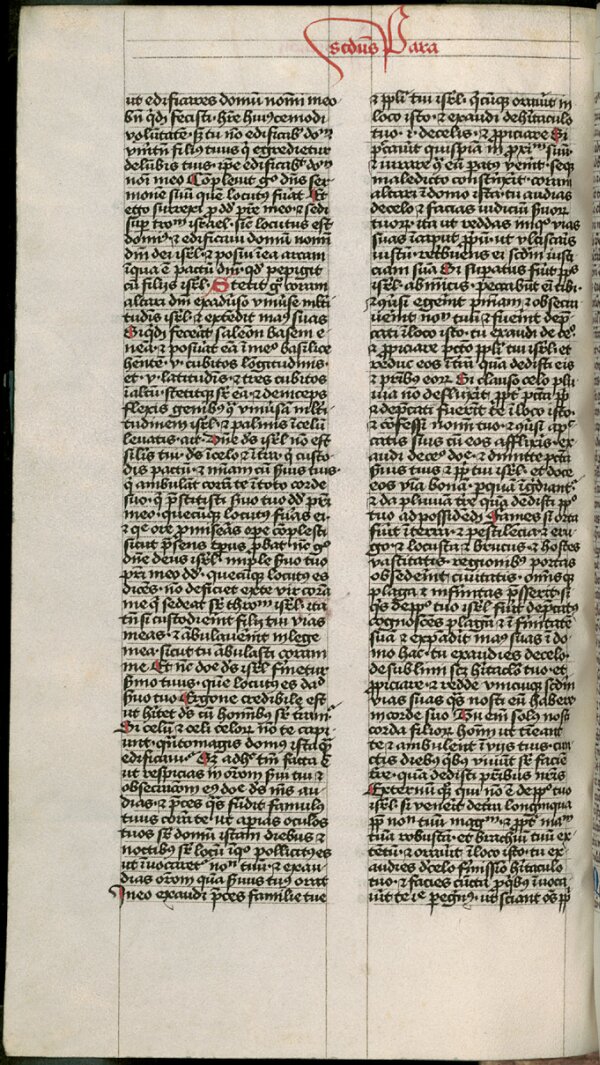 scdus Para
ut edificares domū nomī meo
bn̄ qdē fecisti hr̄e huiꝰcemodi
volūtatē · sꝫ tu nō edificabˢ domū
vmtn̄ filiꝰ tuus qͥ egredietur
de lūbis tuis · ip̄e edificabit domū
noī meo Cōpleuit gͦ dn̄s ser
monē suū quē locutꝰ fūat · Et
ego surrexi ꝓ dd pr̄e meo · ⁊ sedi
sup̄ tronū israel · sic̄ locutus est
domīꝰ · ⁊ edificaui domū nomī
dn̄i dei isrl̄ · ⁊ posui ī ea arcam
ī qua ē pactū dn̄i · qd̄ pepigit
cū filijs isrl̄ · Stetit gͦ coram
altari dn̄i ex aduso vniuse mlti
tudīs isrl̄ · ⁊ extēdit manꝰ suas
Siqͥdē fecerat saleōn basem e
neā · ⁊ posuat eā ī meͦ basilice
hn̄tē · v · cubitos lōgitudinis ·
et · v · latitudīs · ⁊ tres cubitos
ī altū · stetitqꝫ sr̄ eā · ⁊ deinceps
flexis genibꝰ ꝯͣ vniusam mlti
tudinem isrl̄ · ⁊ palmis ī celū
leuatis · ait · Dn̄e ds̄ isrl̄ nō est
silis tui · ds̄ ī celo ⁊ ī tr̄a · qͥ custo
dis pactū · ⁊ mīam cū ẜuis tuis ·
qͥ ambulāt corā te ī toto corde
suo · qͥ p̄stitisti ẜuo tuo dd pr̄i
meo · quecūqꝫ locutꝰ fūas ei ·
⁊ qͣ ore ꝓmiseras ope cōplesti
sicut p̄sens tp̄us ꝓbat · nc̄ gͦ
dn̄e deus isrl̄ · imple ẜuo tuo
pr̄i meo dd · quecūqꝫ locutꝰ es
dicēs · nō deficiet ex te vir corā
me qͥ sedeat sr̄ thronū isrl̄ · ita
tn̄ si custodierint filij tui vias
meas · ⁊ ābulauerint ī lege
mea · sicut tu ābulasti coram
me Et nc̄ dn̄e ds̄ isrl̄ firmetur
sermo tuus · quē locutꝰ es dad
ẜuo tuo Ergone credibile est
ut hītet ds̄ cū hominibꝰ sr̄ terrā ·
Si celū ⁊ celi celorꝫ nō te capi
unt · qͣntomagis domꝰ ista qͣm
edificaui · Sꝫ ad hͦ tm̄ facta ē
ut respicias ī orōem ẜui tui ⁊
obsecrōem eiꝰ dn̄e ds̄ ms̄ · au
dias · ⁊ p̄ces qͣs fūdit famulus
tuus corā te · ut apias oculos
tuos sr̄ domū istam diebus ⁊
noctibus sr̄ locū ī qͦ pollicitꝰ es
ut īuocaretᷣ nom̄ tuū · ⁊ exau
dias orōem quā ẜuus tuꝰ orat
ī eo exaudi p̄ces familie tue
⁊ ppl̄i tui isrl̄ · Quicūqꝫ orauit in
loco isto · ⁊ exaudi de hītaculo
tuo · ī de celis · ⁊ ꝓpiciare Si
p̄cauit quispiā in ꝓximū suū ·
⁊ iurare ꝯͣ eū patꝰ venit · seqꝫ
maledicto constrinxit · coram
altari ī domo ista · tu audias
de celo · ⁊ facias iudiciū ẜuorꝫ
tuorꝫ · ita ut reddas iniqͦ vias
suas ī caput ppͥū · ut vlciscaris
iustū · retribuens ei scdm̄ iusti
ciam suā Si supatus fuit ppls
isrl̄ · ab inimicis · peccabūt enī tibi ·
⁊ ꝯuersi egerint pniam · ⁊ obsecra
uerint nom̄ tuū · ⁊ fuerint dep̄
cati ī loco isto · tu exaudi de ceͦ ·
⁊ ꝓpiciare p̄cto ppl̄i tui isrl̄ · et
reduc eos ī tr̄ā quā dedisti eis
⁊ pr̄ibꝰ eorꝫ Si clauso celo plu
uia nō defluxit · ppt p̄cta pp̄li
⁊ dep̄cati fuerīt te ī loco isto ·
⁊ cōfessi nom̄ tuo · ⁊ ꝯuersi a p̄c
catis suis cū eos afflixeris · ex
audi de ceͦ dn̄e · ⁊ dimitte p̄cta
ẜuis tuis ⁊ ppl̄i tui isrl̄ · et doce
eos viā bonā · p quā īgrediantᷣ ·
⁊ da pluuiā tr̄e quā dedisti pplͦ
tuo ad possidēdū Fames si orta
fuit ī terra · ⁊ pestilēcia ⁊ eru
go · ⁊ locusta ⁊ brucus · ⁊ hostes
vastatis · regionibꝰ portas
obsederint ciuitatis · omīsqꝫ
plaga ⁊ infirmitas p̄sserit · si
qͥs de pplͦ tuo isrl̄ · fuit dep̄catꝰ
cognoscēs plagā ⁊ īfirmitatē
suā ⁊ expādit manꝰ suas ī do
mo hac · tu exaudies de celo ·
de sublimi scꝫ hītaclo tuo · et
ꝓpiciare · ⁊ redde vnicuiqꝫ scdm̄
vias suas qͣs nosti eū habere
in corde suo Tu enī solus nosti
corda filiorꝫ homī · ut timeant
te · ⁊ ambulent ī vijs tuis · cun
ctis diebꝰ qͥbꝫ viuūt sr̄ faciē
tr̄e · quā dedisti pr̄ibus nr̄is
Externū qꝫ qui nō ē de pplͦ tuo
isrl̄ · si venerit de tr̄a longinqua
ppt nom̄ tuū magnū · ⁊ ppt manū
tuā robustā · et brachiū tuū ex
tētū · ⁊ orauit ī loco isto · tu ex
audies d'celo firmissio hītaculo
tuo · ⁊ facies cūcta p quibꝫ īuoca
uit te ille peregnꝰ · ut sciant oēs ppl̄i